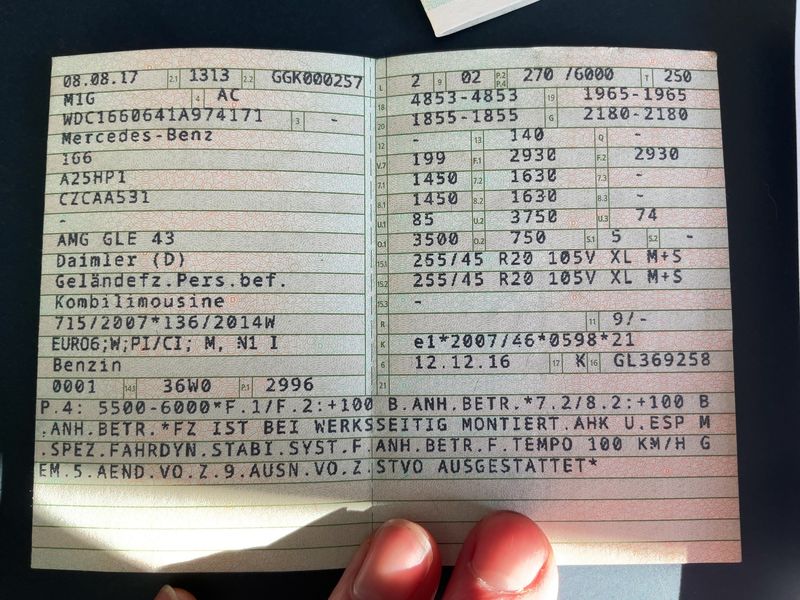 08.08.17 2.1 1313 2.2 GGK000257
M1G 4 AC
WDC1660641A974171 3 -
Mercedes-Benz
166
A25HP1
CZCAA531
-
AMG GLE 43
Daimler (D)
Geländefz.Pers.bef.
Kombilimousine
715/2007*136/2014W
EURO6;W;PI/CI; M, N1 I
Benzin
0001 14.1 36W0 P.1 2996
L 2 9 02 P.2 P.4 270 /6000 T 250
18 4853-4853 19 1965-1965
20 1855-1855 G 2180-2180
12 - 13 140 Q -
V.7 199 F.1 2930 F.2 2930
7.1 1450 7.2 1630 7.3 -
8.1 1450 8.2 1630 8.3 -
U.1 85 U.2 3750 U.3 74
O.1 3500 O.2 750 S.1 5 S.2 -
15.1 255/45 R20 105V XL M+S
15.2 255/45 R20 105V XL M+S
15.3 -
R 11 9/-
K e1*2007/46*0598*21
6 12.12.16 17 K 16 GL369258
21
P.4: 5500-6000*F.1/F.2:+100 B.ANH.BETR.*7.2/8.2:+100 B
.ANH.BETR.*FZ IST BEI WERKSSEITIG MONTIERT.AHK U.ESP M
.SPEZ.FAHRDYN.STABI.SYST.F.ANH.BETR.F.TEMPO 100 KM/H G
EM.5.AEND.VO.Z.9.AUSN.VO.Z.STVO AUSGESTATTET*